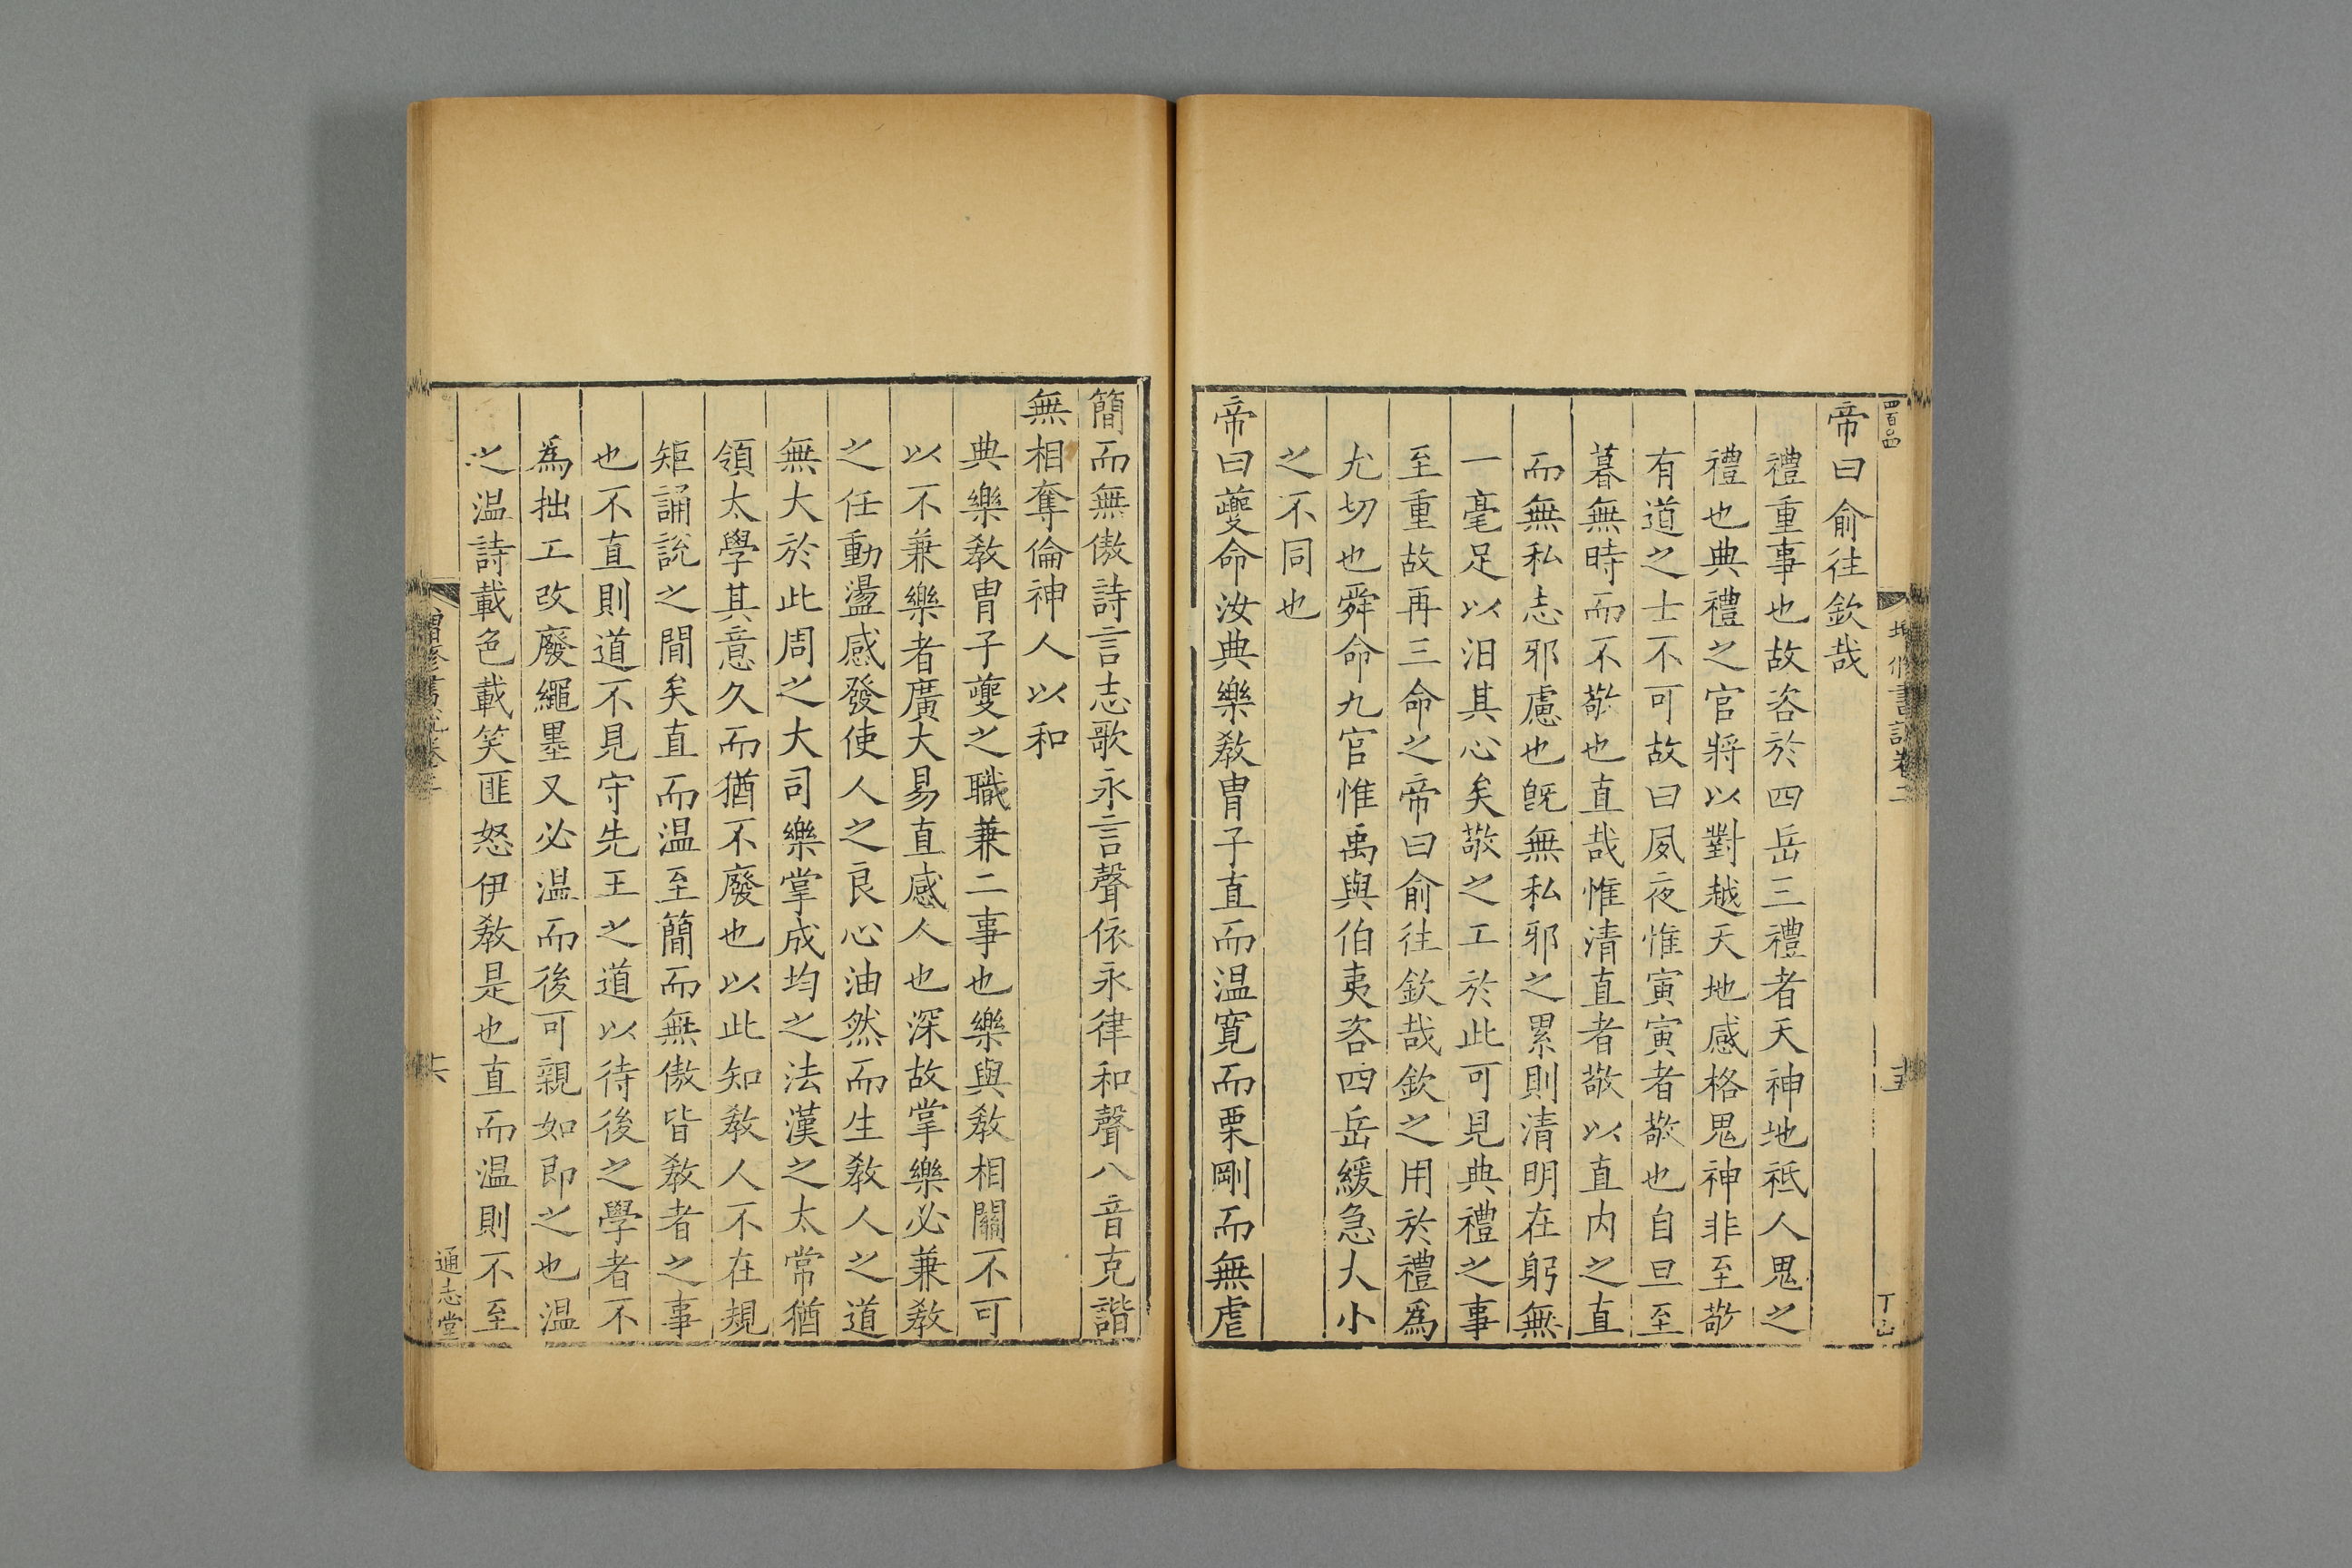 四百四
帝曰俞往欽哉
禮重事也故咨於四岳三禮者天神地祇人鬼之
禮也典禮之官將以對越天地感格鬼神非至敬
有道之士不可故曰夙夜惟寅寅者敬也自旦至
暮無時而不敬也直哉惟清直者敬以直内之直
而無私志邪慮也既無私邪之累則清明在躬無
一毫足以汨其心矣敬之工於此可見典禮之事
至重故再三命之帝曰俞往欽哉欽之用於禮爲
尤切也舜命九官惟禹與伯夷咨四岳緩急大小
之不同也
帝曰夔命汝典樂教胄子直而温寛而栗剛而無虐
簡而無傲詩言志歌永言聲依永律和聲八音克諧
無相奪倫神人以和
典樂教胄子夔之職兼二事也樂與教相關不可
以不兼樂者廣大易直感人也深故掌樂必兼教
之任動盪感發使人之良心油然而生教人之道
無大於此周之大司樂掌成均之法漢之太常猶
領太學其意久而猶不廢也以此知教人不在規
矩誦說之間矣直而温至簡而無傲皆教者之事
也不直則道不見守先王之道以待後之學者不
爲拙工改廢繩墨又必温而後可親如即之也温
之温詩載色載笑匪怒伊教是也直而温則不至
增修書說卷二
六
通志堂